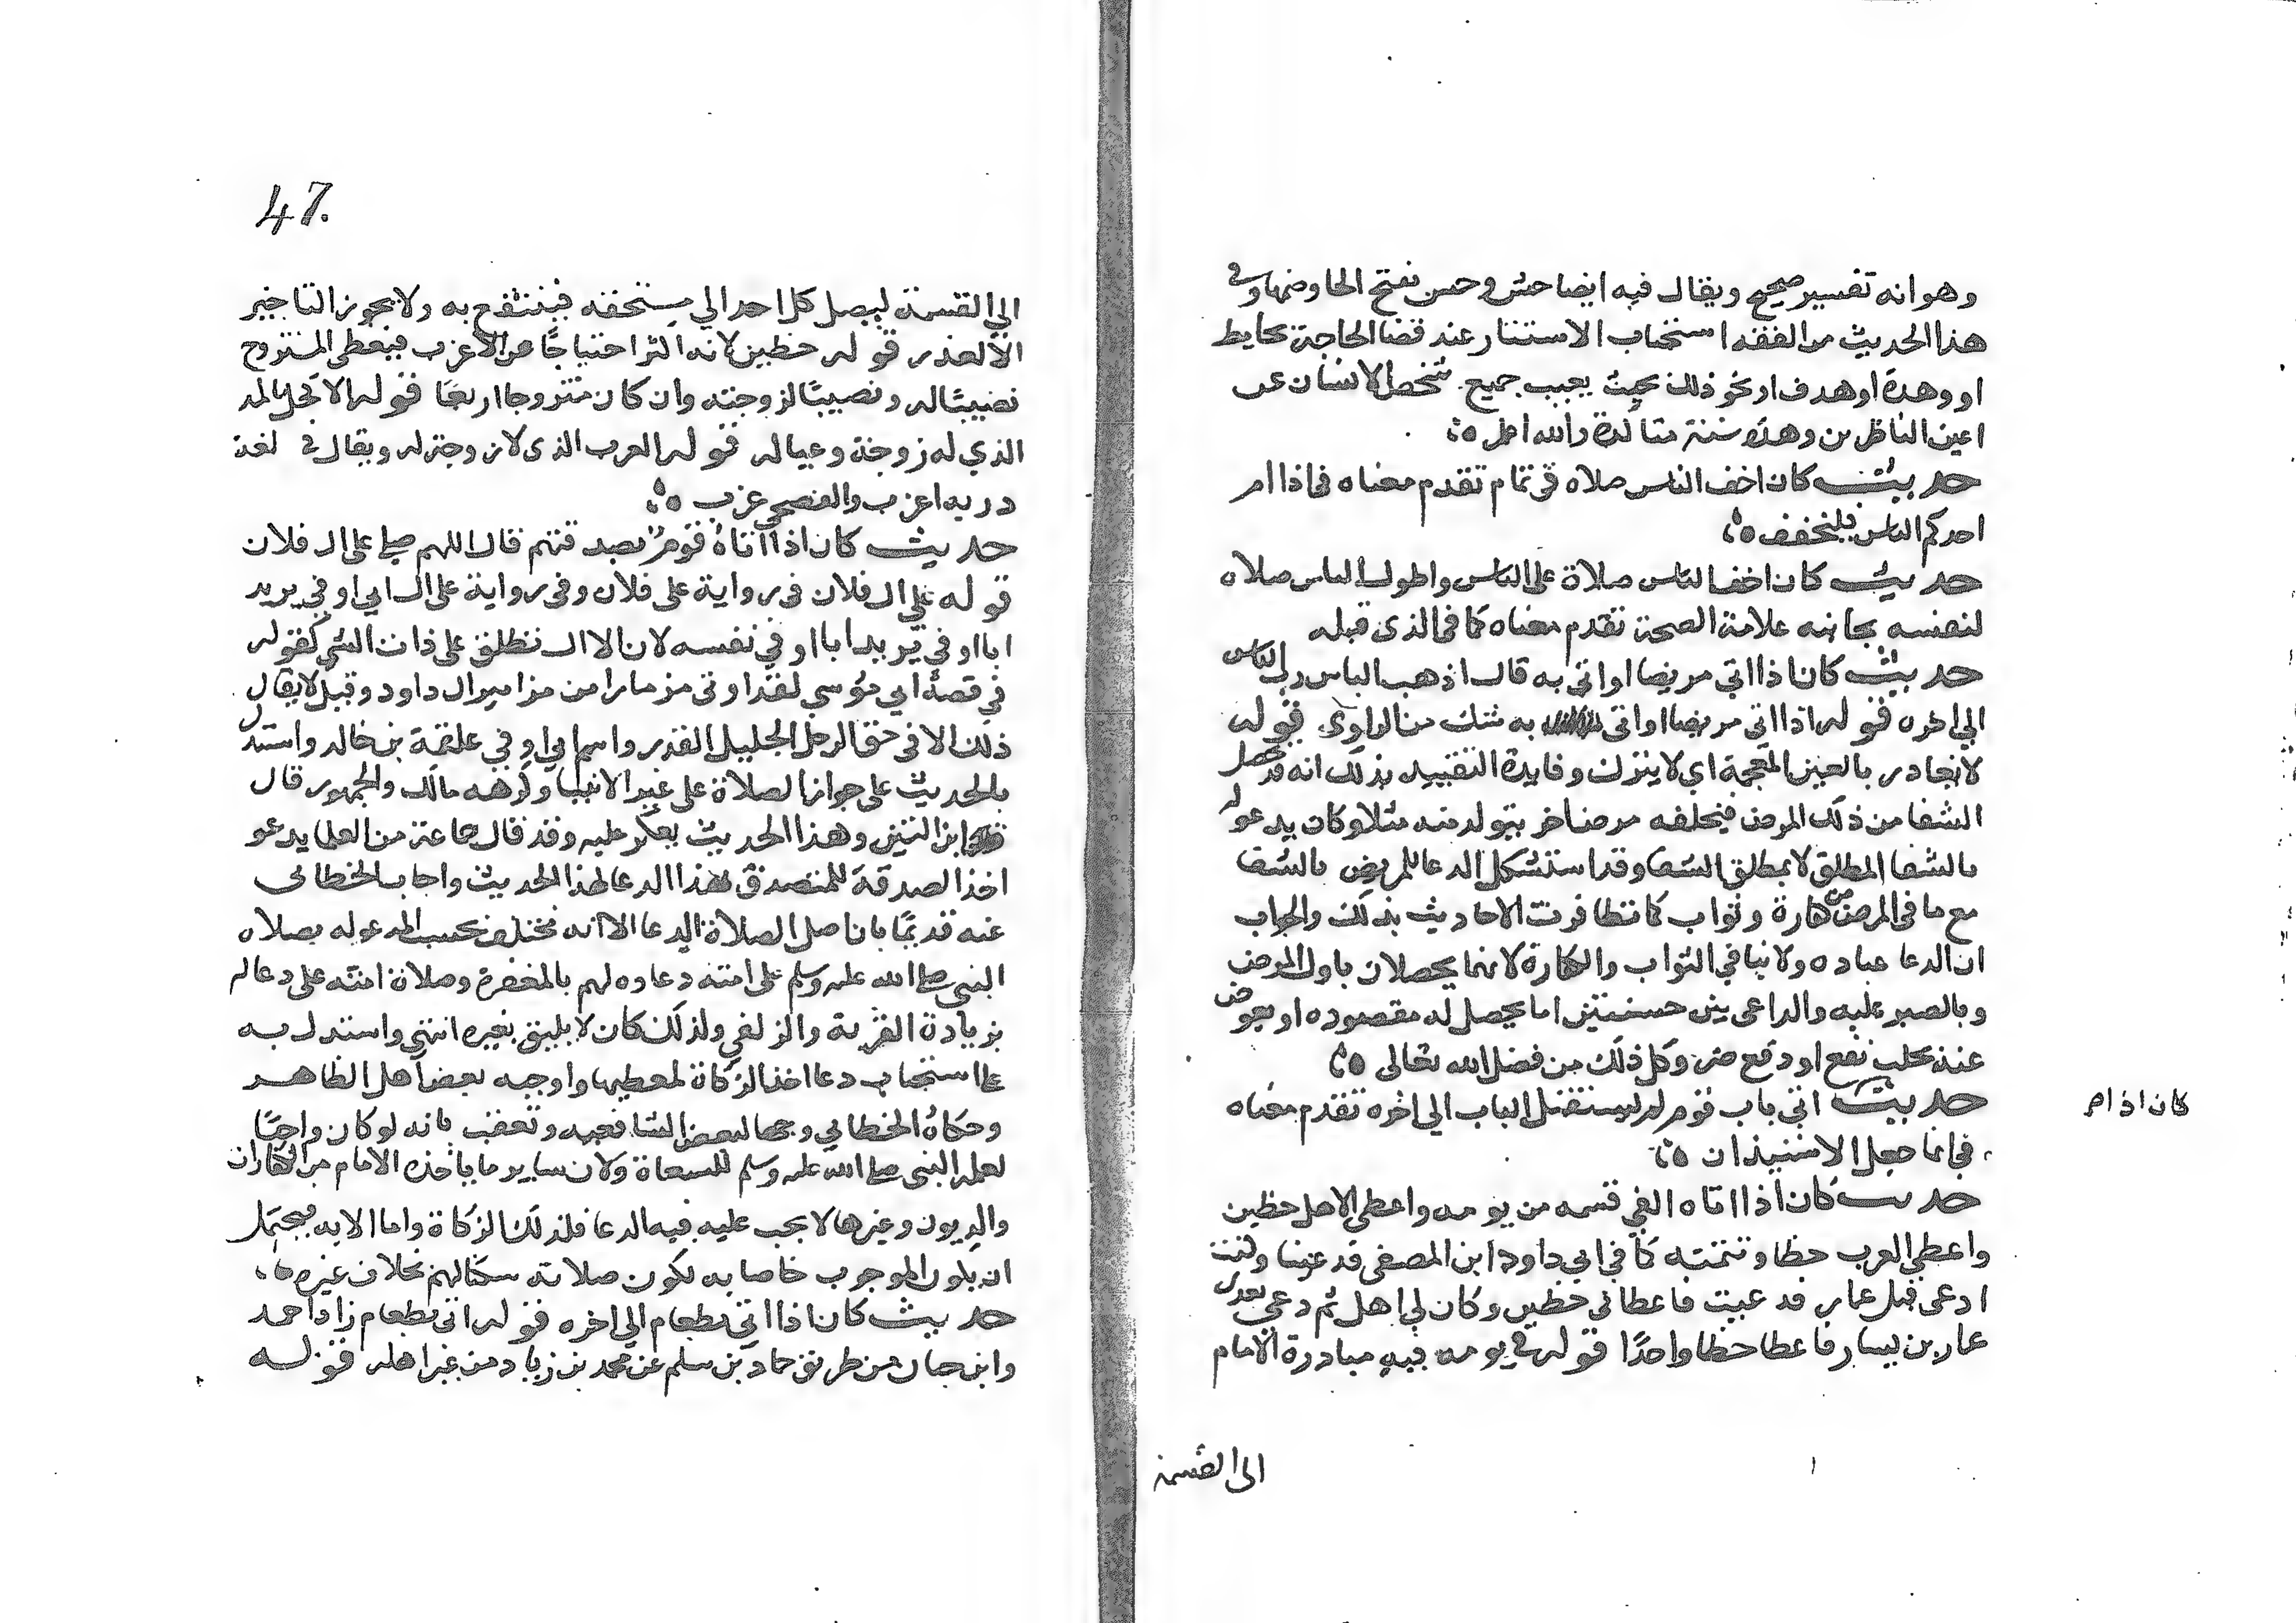 وهو انه تفسير صحيح ويقال فيه ايضا حش وحسن بفتح الحا وضمها وفي
هذا الحديث من الفقه استحباب الاستتار عند قضا الحاجة بحايط
او وهدة او هدف او نحو ذلك بحيث يغيب جميع شخص الانسان عن
اعين الناظرين وهذه سنة متاكدة والله اعلم
حديث كان اخف الناس صلاه في تمام تقدم معناه في اذا ام
احدكم الناس فليخفف
حديث كان اخف الناس صلاة على الناس واطول الناس صلاه
لنفسه بجانبه علامة الصحة تقدم معناه كما في الذي قبله
حديث كان اذا اتى مريضا او اتي به قال اذهب الباس رب الناس
الي اخره قوله اذا اتى مريضا او اتى به شك من الراوي قوله
لا يغادر بالغين المعجمة اي لا يترك وفايدة التقييد بذلك انه قد يحصل
الشفا من ذلك المرض فيخلفه مرض اخر يتولد منه مثلا وكان يدعو له
بالشفا المطلق لا بمطلق الشفا وقد استشكل الدعا للمريض بالشفا
مع ما في المرض من كفارة وثواب كما تظافرت الاحاديث بذلك والجواب
ان الدعا عباده ولا ينافي الثواب والكفارة لانهما يحصلان باول المرض
وبالصبر عليه والداعي بين حسنتين اما يحصل له مقصوده او يعوض
عنه بجلب نفع او دفع ضر وكل ذلك من فضل الله تعالى
حديث اتى باب قوم لم يستقبل الباب الي اخره تقدم معناه
كان اذا م
في انما جعل الاستيذان
حديث كان اذا اتاه الفي قسمه من يومه واعطى الاهل حظين
واعطي العرب حظا وتتمته كما في ابي داود ابن المصفى قد عينا وكنت
ادعى قبل عمار فدعيت فاعطاني حظين وكان لي اهل ثم دعي بعدي
عمار بن يسار فاعطا حظا واحدًا قوله في يومه فيه مبادرة الامام
الى القسمة
47.
الي القسمة ليصل كل احد الي مستحقه فينتفع به ولا يجوز التاخير
الا لعذر قوله حظين لانه اكثر احتياجًا من الاعزب فيعطى المتزوج
نصيبًا له ونصيبًا لزوجته وان كان متزوجا اربعًا قوله الاهل بالمد
الذي له زوجة وعيال قوله العرب الذي لا زوجة له ويقال في لغة
رديه اعزب والفصحى عزب
حديث كان اذا اتاهُ قومٌ بصدقتهم قال اللهم صل على ال فلان
قوله علي ال فلان في رواية على فلان وفي رواية على ال ابي اوفي يريد
ابا اوفي يريد ابا اوفي نفسه لان الال تطلق على ذات الشي كقوله
في قصة ابي موسي لقد اوتى مزمارا من مزامير ال داود وقيل لا يقال
ذلك الا في حق الرجل الجليل القدر واسم ابي اوفي علقمة بن خالد واستدل
بالحديث على جواز الصلاة على غير الانبيا وكرهه مالك والجمهور قال
ابن التين وهذا الحديث يعكر عليه وقد قال جماعة من العلما يدعو
اخذ الصدقة للمتصدق بهذا الدعا لهذا الحديث واجاب الخطابي
عنه قديمًا بان اصل الصلاة الدعا الا انه يختلف بحسب المدعو له فصلاه
النبي صلى الله عليه وسلم على امته دعاوه لهم بالمغفرة وصلاة امته على دعا له
بزيادة القربة والزلفي ولذلك كان لا يليق بغيره انتهى واستدل به
على استحباب دعا اخذ الزكاة لمعطيها واوجبه بعض اهل الظاهر
وحكاهُ الخطابي وجها لبعض الشافعيه وتعقب بانه لو كان واجبًا
لعلمه النبي صلى الله عليه وسلم للسعاة ولان ساير ما ياخذه الامام من الكفارات
والديون وغيرها لا يجب عليه فيه الدعا فلذلك الزكاة واما الايه فيحتمل
ان يكون الوجوب خاصا به لكون صلاته سكنا لهم بخلاف غيره
حديث كان اذا اتي بطعام الي اخره قوله اتى بطعام زاد احمد
وابن حبان من طريق حماد بن سلم عن محمد بن زياد من غير اهله قوله